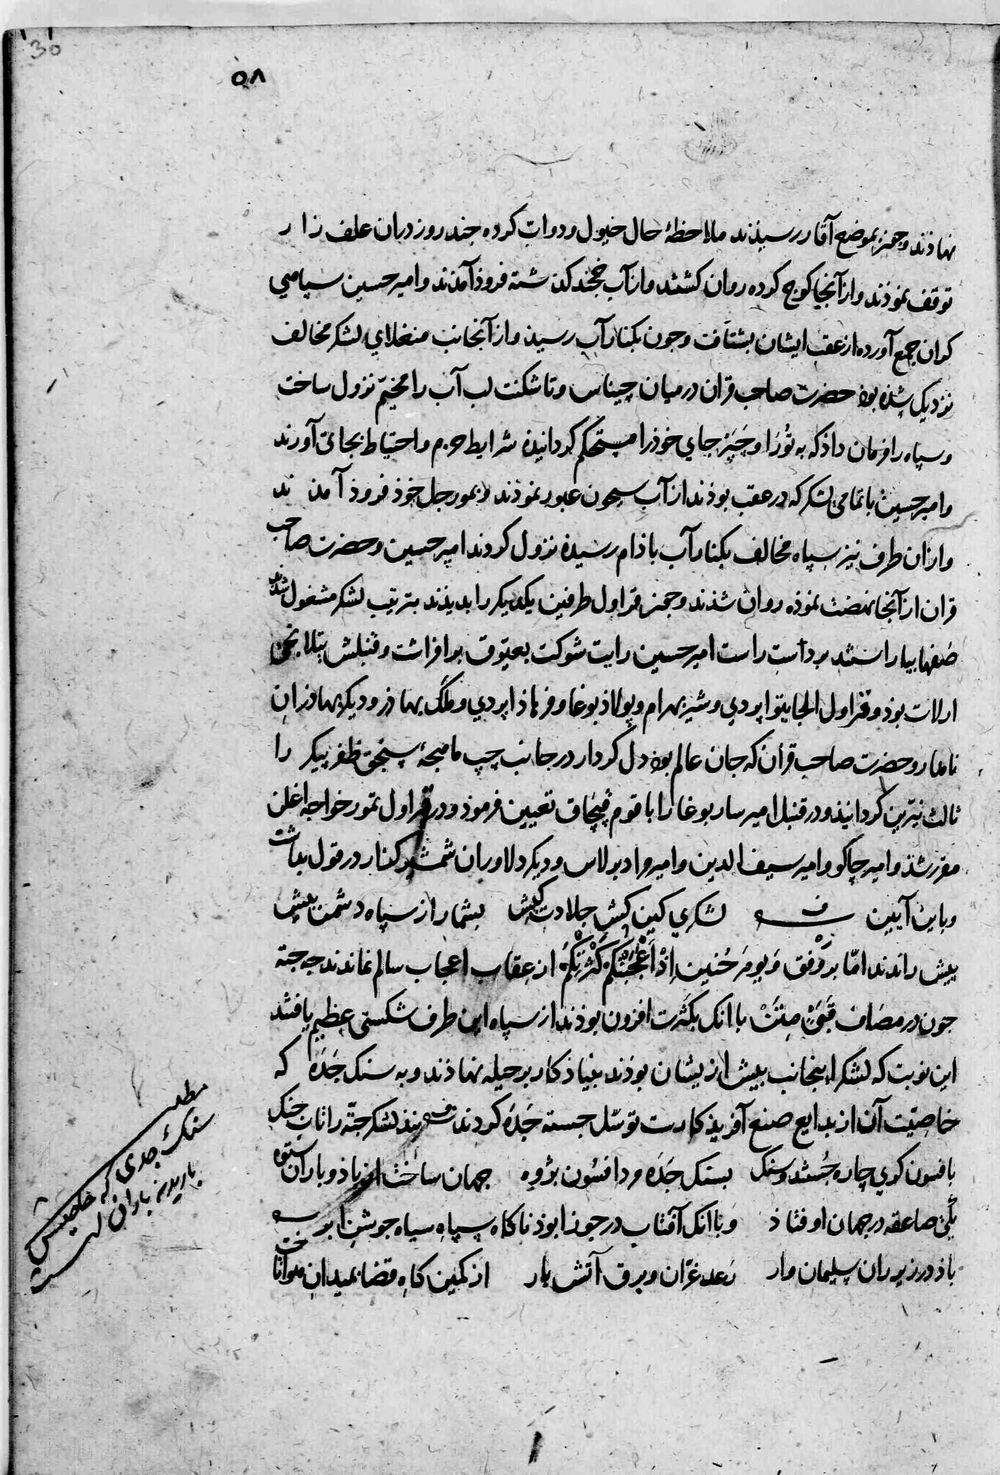 ۵۸
نهاذند وجون بموضع آقار رسیذند ملاحظهٔ حال خیول ودواب کرده جند روز دران علف زار
توقف نموذند واز آنجا کوچ کرده روان کشتند واز آب خجند کذشته فروذ آمذند وامیر حسین سپاهی
کران جمع آورده از عقب ایشان بشتافت وجون بکنار آب رسیذ واز آنجانب منغلای لشکر مخالف
نزدیک شذه بوذ حضرت صاحب قران در میان چیناس وتاشکنت لب آب را مخیّم نزول ساخت
وسپاه را فرمان داذ که به تُورا وچَپَر جای خوذ را مستحکم کردانیده شرایط حزم واحتیاط بجای آورند
وامیر حسین با تمامی لشکر که در عقب بوذند از آب سیحون عبور نموذند وبمورجل خوذ فروذ آمذند
وازان طرف نیز سپاه مخالف بکنار آب باذام رسیده نزول کردند امیر حسین وحضرت صاحب
قران از آنجا نهضت نموذه روان شذند وجون قراول طرفین یکدیکر را بدیذند بترتیب لشکر مشغول شدند
صفها بیاراستند بر دست راست امیر حسین رایت شوکت بعیّوق برافراشت وقنبلش تیلانجی
ارلات بوذ وقراول الجایتو اپردی وشیر بهرام وپولاذ بوغا وفرهاذ اپردی وملک بهاذر ودیکر بهاذران
نامدار وحضرت صاحب قران که جان عالم بوذ دل کردار در جانب چپ ماهیچهٔ سنجق ظفر پیکر را
ثالث نیّرین کردانیذ ودر قنبل امیر ساربوغا را با قوم قپچاق تعیین فرموذ ودر قراول تمور خواجه اغلن
مقرر شذ وامیر جاکو وامیر سیف الدین وامیر مراد برلاس ودیکر دلاوران شمشیر کذار در قول بداشت
وباین آیین لشکری کین کش جلادت کیش بیشمار از سپاه دشمن بیش
پیش راندند امّا بر وفق وَیَومَ حُنَینٍ اِذْ اَعْجَبَتْکُمْ کَثْرَتُکُمْ از عقاب اعجاب سالم نماندند جه جته
جون در مصاف قَبَیْ مِتَنْ با آنک بکثرت افزون بوذند از سپاه این طرف شکستی عظیم یافتند
این نوبت که لشکر اینجانب بیش از یشان بوذند بنیاذ کار بر حیله نهاذند وبه سنک جَدَه که
خاصیّت آن از بدایع صنع آفریذکارست توسّل جسته جَدَه کردند لشکر جتّه را تاب جنک
بافسون کری چاره جُستند وسنک بسنک جَدَه مرد افسون پژوه جهان ساخت از باذ وباران ستوه
صاعقه در جهان اوفتاذ وبا آنک آفتاب در جوزا بوذ ناکاه سپاه سیاه جوشن ابر
باذ در زیر ران سلیمان وار رعد غرّان وبرق آتش بار از کمین کاه قضا بمیدان هوا تاخت
مطلب
سنک جدی که خاصیتش
باریدن باران است